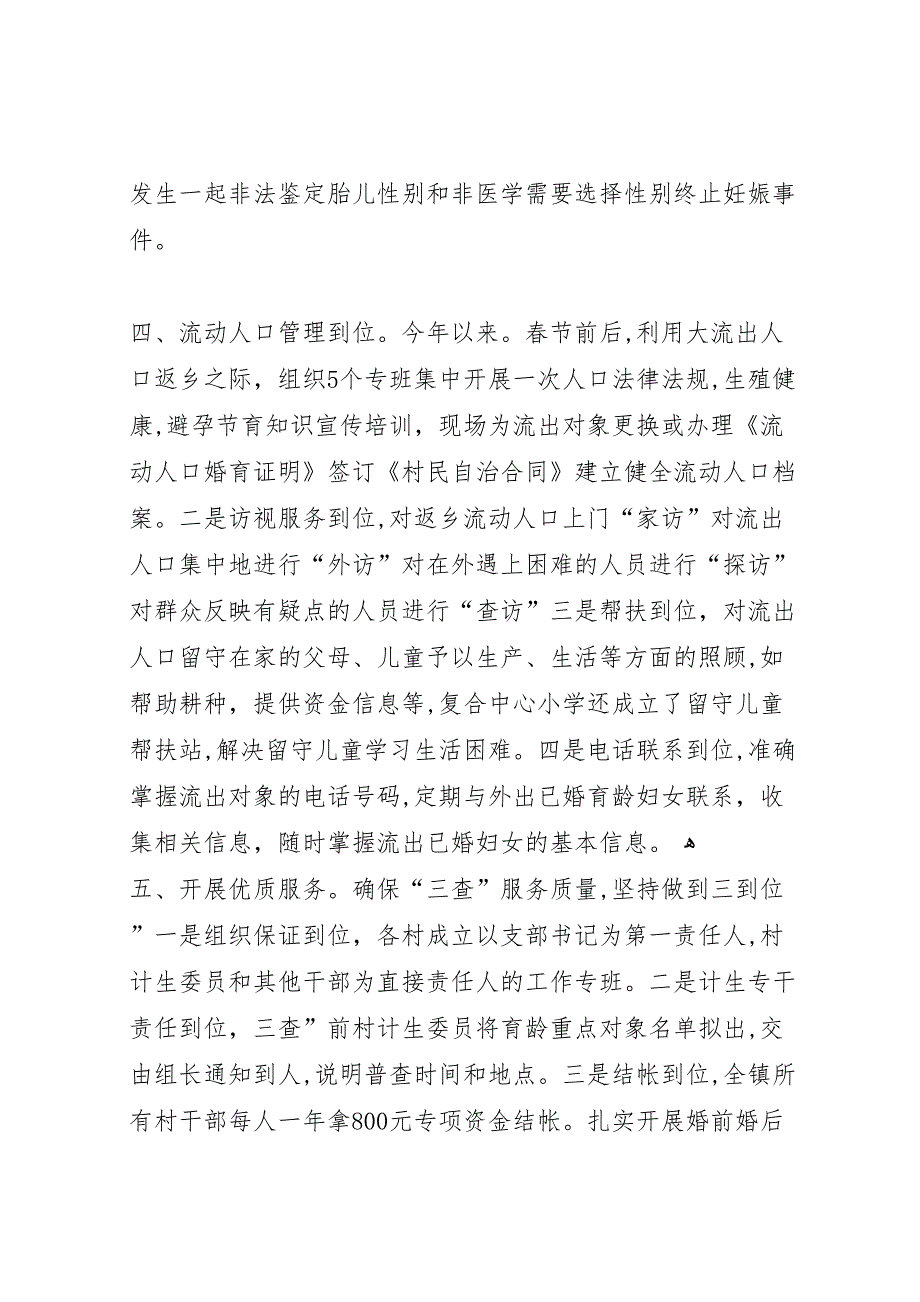 发生一起非法鉴定胎儿性别和非医学需要选择性别终止妊娠事
件。
四、流动人口管理到位。今年以来。春节前后,利用大流出人
口返乡之际，组织5个专班集中开展一次人口法律法规,生殖健
康,避孕节育知识宣传培训，现场为流出对象更换或办理《流
动人口婚育证明》签订《村民自治合同》建立健全流动人口档
案。二是访视服务到位,对返乡流动人口上门“家访”对流出
人口集中地进行“外访”对在外遇上困难的人员进行“探访”
对群众反映有疑点的人员进行“查访”三是帮扶到位，对流出
人口留守在家的父母、儿童予以生产、生活等方面的照顾,如
帮助耕种，提供资金信息等,复合中心小学还成立了留守儿童
帮扶站,解决留守儿童学习生活困难。四是电话联系到位,准确
掌握流出对象的电话号码,定期与外出已婚育龄妇女联系，收
集相关信息，随时掌握流出已婚妇女的基本信息。 ﻫ
五、开展优质服务。确保“三查”服务质量,坚持做到三到位
”一是组织保证到位，各村成立以支部书记为第一责任人,村
计生委员和其他干部为直接责任人的工作专班。二是计生专干
责任到位，三查”前村计生委员将育龄重点对象名单拟出,交
由组长通知到人,说明普查时间和地点。三是结帐到位,全镇所
有村干部每人一年拿800元专项资金结帐。扎实开展婚前婚后